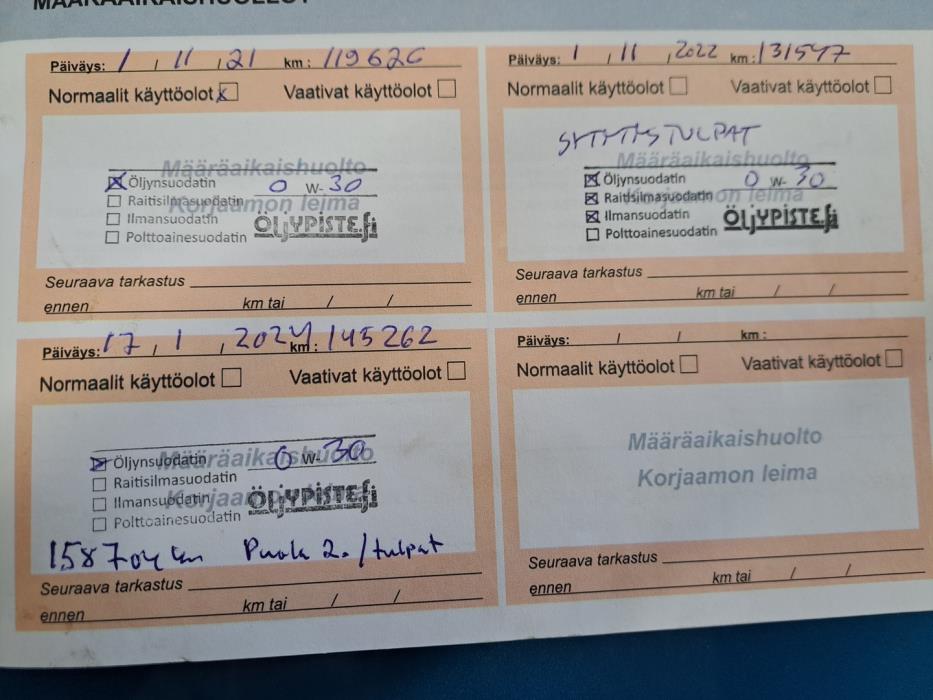 MÄÄRÄAIKAISHUOLLOT
Päiväys: 1 , 11 , 21 km : 119626
Normaalit käyttöolot x Vaativat käyttöolot
Määräaikaishuolto
Korjaamon leima
x Öljynsuodatin 0 W- 30
Raitisilmasuodatin
Ilmansuodatin
Polttoainesuodatin
ÖLJYPISTE.fi
Seuraava tarkastus
ennen km tai / /
Päiväys: 1 , 11 , 2022 km : 131547
Normaalit käyttöolot Vaativat käyttöolot
SYTYTYSTULPAT
Määräaikaishuolto
Korjaamon leima
x Öljynsuodatin 0 W- 30
x Raitisilmasuodatin
x Ilmansuodatin
Polttoainesuodatin
ÖLJYPISTE.fi
Seuraava tarkastus
ennen km tai / /
Päiväys: 17 , 1 , 2024 km : 145262
Normaalit käyttöolot Vaativat käyttöolot
Määräaikaishuolto
Korjaamon leima
x Öljynsuodatin 0 W- 30
Raitisilmasuodatin
Ilmansuodatin
Polttoainesuodatin
ÖLJYPISTE.fi
158704 km Puola 2. / tulpat
Seuraava tarkastus
ennen km tai / /
Päiväys: / / km :
Normaalit käyttöolot Vaativat käyttöolot
Määräaikaishuolto
Korjaamon leima
Seuraava tarkastus
ennen km tai / /